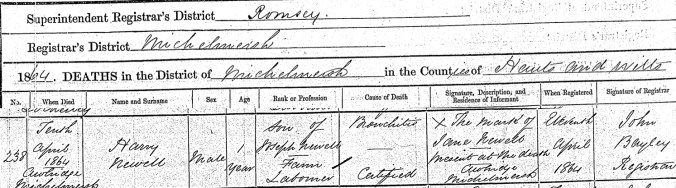 Superintendent Registrar's District Romsey
Registrar's District Michelmersh
1864. DEATHS in the District of Michelmersh in the Counties of Hants and Wilts
No. When Died Name and Surname Sex Age Rank or Profession Cause of Death Signature, Description, and Residence of Informant When Registered Signature of Registrar
238
Tenth
April
1864
Awbridge
Michelmersh
Harry
Newell
Male
1
Year
Son of
Joseph Newell
Farm
Labourer
Bronchitis
Certified
X The Mark of
Jane Newell
Present at the death
Awbridge
Michelmersh
Eleventh
April
1864
John
Bayley
Registrar